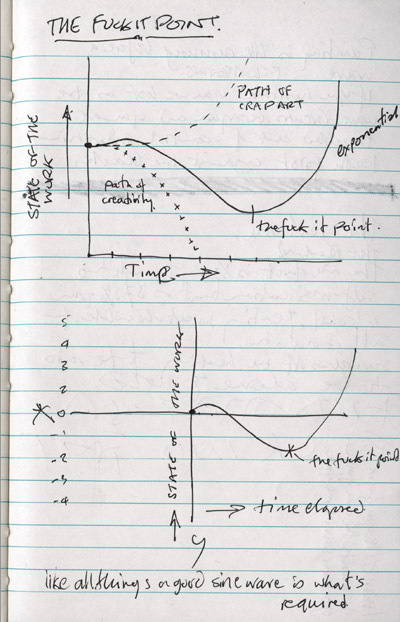 THE FUCK IT POINT.
PATH OF
CRAP ART
STATE OF THE
WORK
exponential
path of
creativity.
the fuck it point.
Time
5
4
3
2
X 0
-1
-2
-3
-4
STATE OF THE WORK
the fuck it point
time elapsed
y
like all things a good sine wave is what's
required